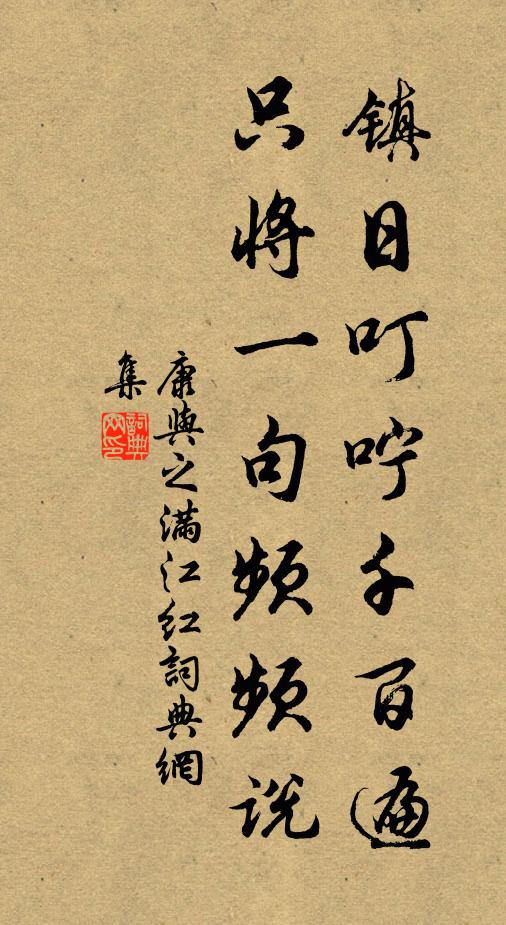 镇日叮咛千百遍
只将一句频频说
康與之满江红詞典網
集
詞典
网印